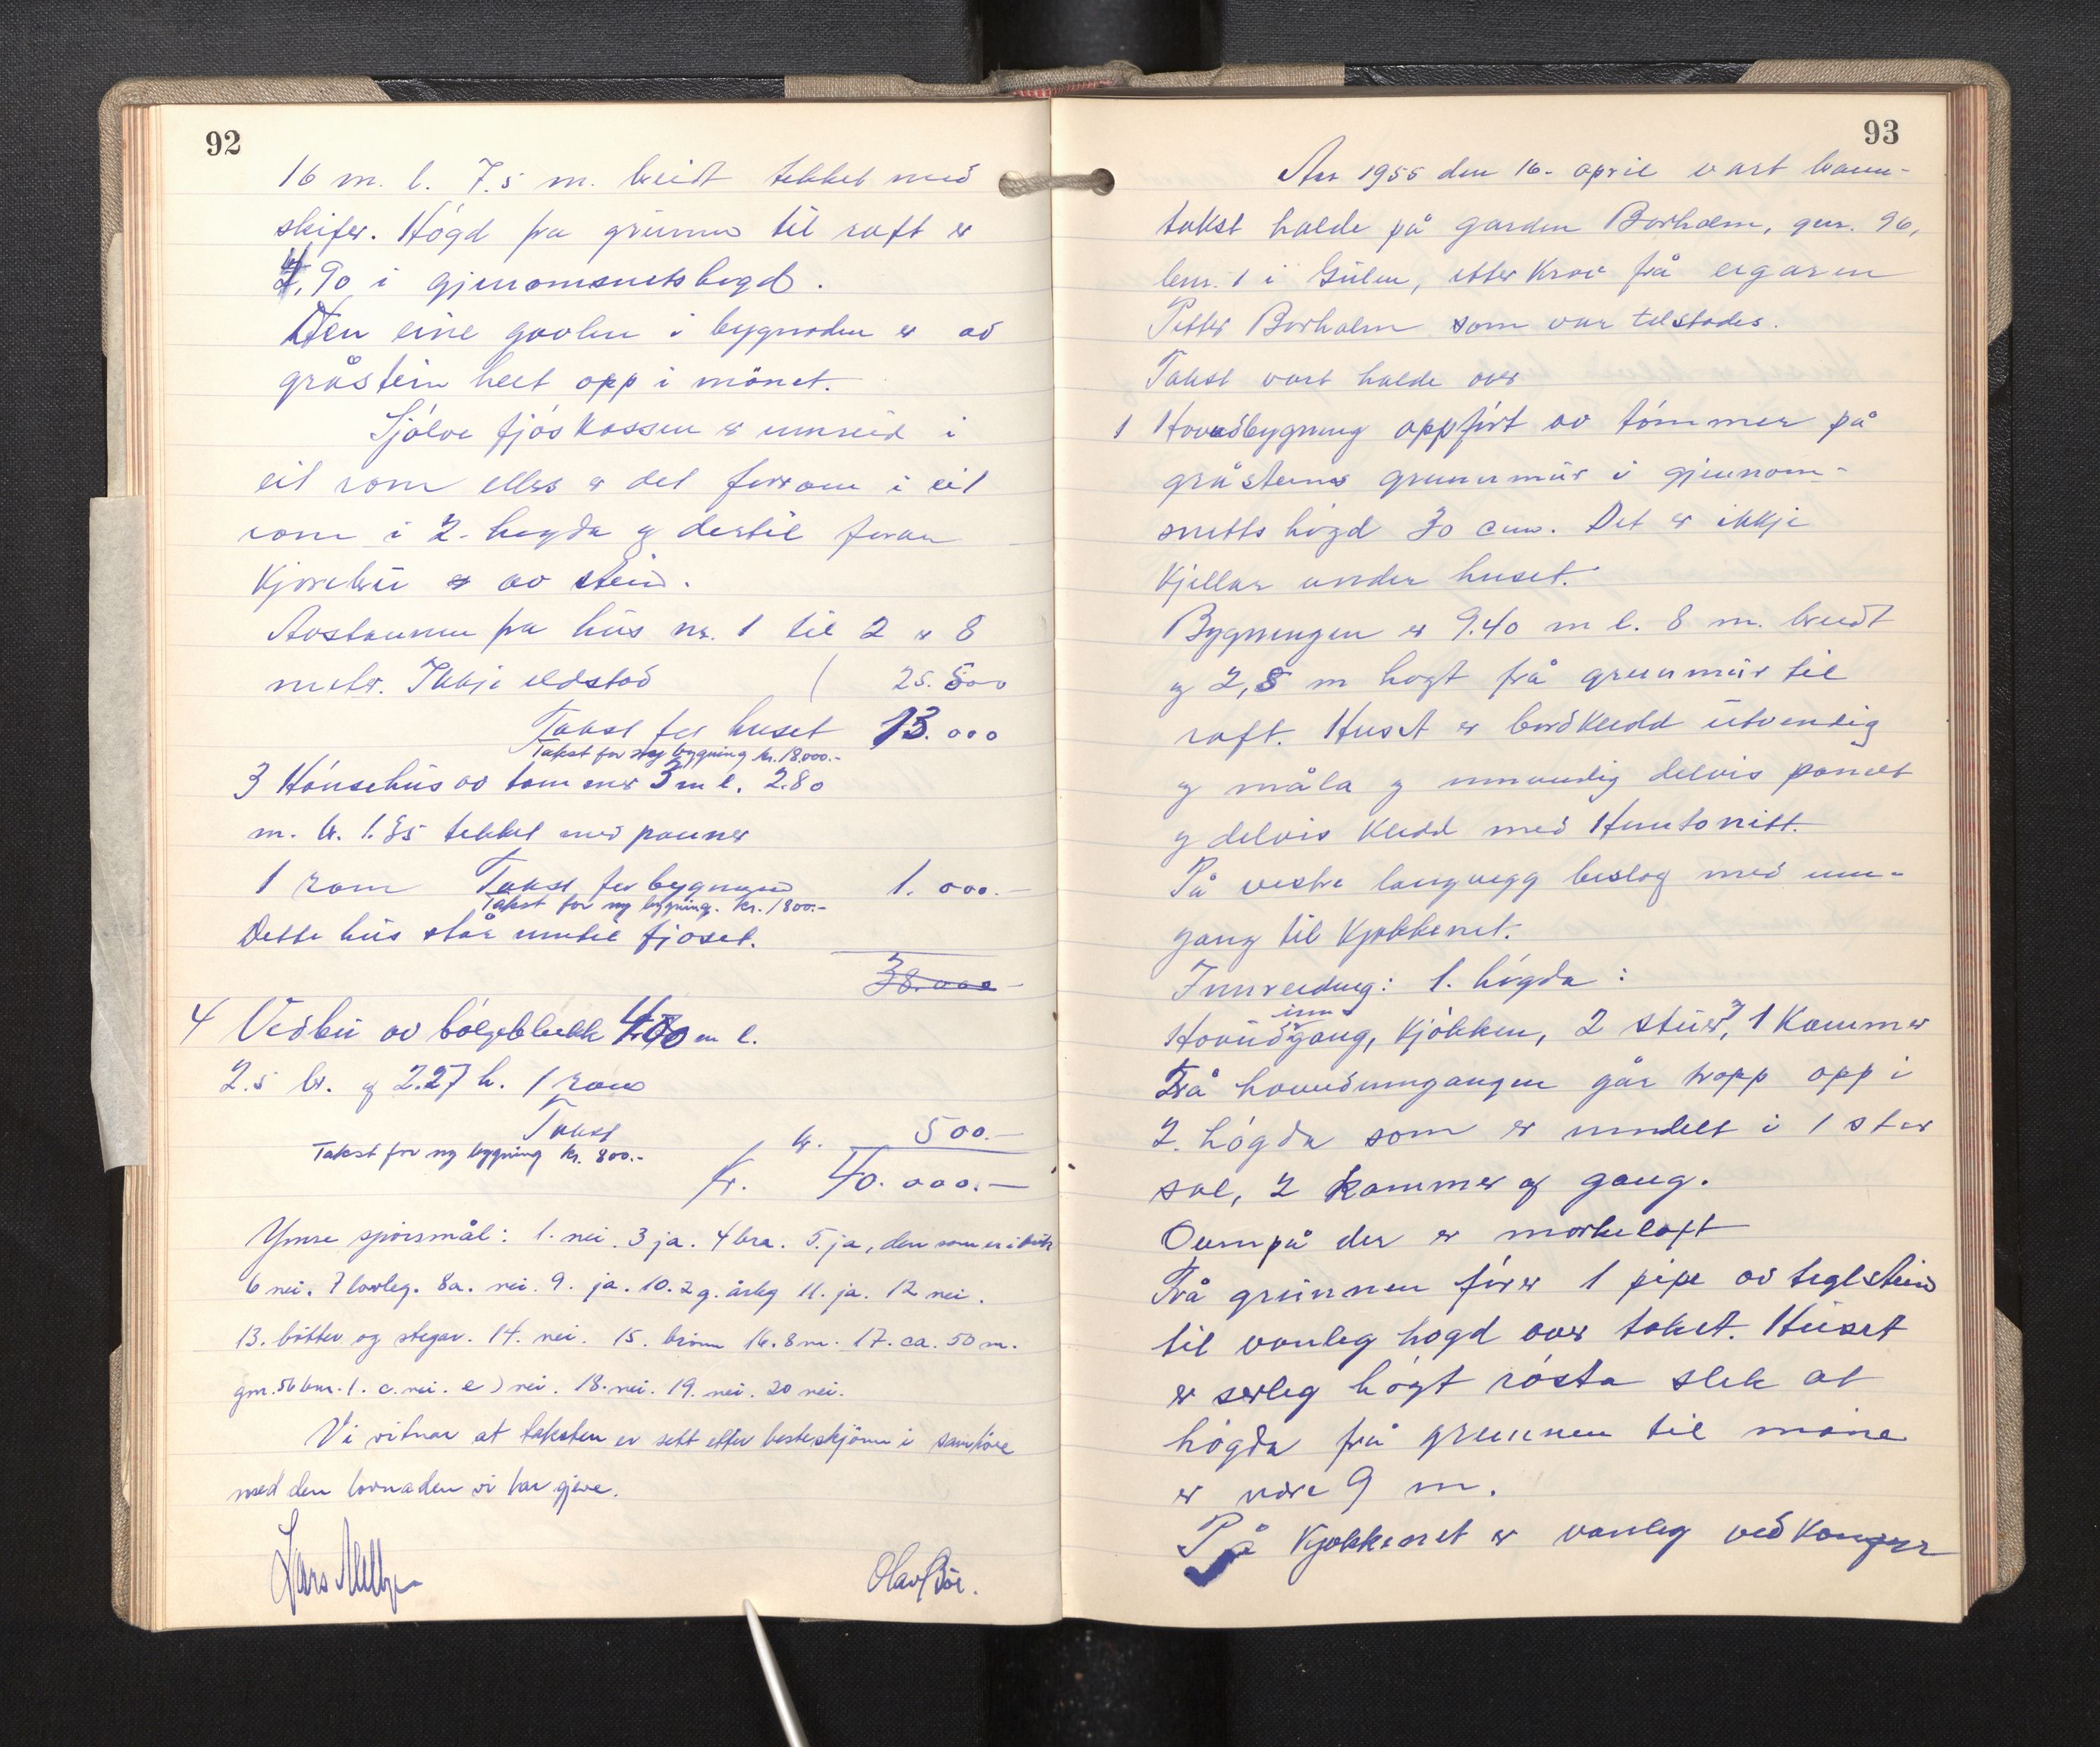 92
16 m. l. 7.5 m. breidt tekket med
skifer. Högd fra grunnen til raft er
4,90 i gjenomsnetshogd.
Den eine gavlen i bygnaden er av
gråstein heit opp i mönet.
Sjölve fjöskassen er innreid i
eit rom elles er det forrom i eit
rom i 2. hogda og dertil foran
Kjorebru av stein.
Avstannen fra hus nr. 1 til 2 er 8
meter. Ikkje eldstad 25.500
Takst for huset 13.000
Takst for ny bygning kr. 18.000.-
3 Hönsehus av tommer 3 m l. 2.80
m. br. 1.85 tekket med panner
1 rom Takst for bygningen 1.000.-
Takst for ny bygning. kr. 1800.-
Dette hus står inntil fjoset.
38.000-
4 Vedbu av bölgeblekk 4.00 m l.
2.5 br. og 2.27 h. 1 rom
Takst kr. 500.-
Takst for ny bygning kr. 800.-
Kr. 40.000.-
Ymse spörsmål: 1. nei. 3 ja. 4 bra. 5. ja, den som er i bruk
6 nei. 7 lovleg. 8a. nei. 9. ja. 10. 2 g. årleg 11. ja. 12 nei.
13. bötter og stegar. 14. nei. 15. brönn 16. 8 m. 17. ca. 50 m.
gnr. 56 bnr. 1. c. nei. e) nei. 18. nei. 19. nei. 20 nei.
Vi vitnar at taksten er sett etter beste skjönn i samhöve
med den lovnaden vi har gjeve.
Lars Olav Böe.
93
Aar 1955 den 16. april vart brann-
takst halde på garden Borholm, gnr. 96,
bnr. 1 i Gulen, etter Krav frå eigaren
Petter Borholm som var tilstades.
Takst vart halde over
1 Hovudbygning oppfört av tömmer på
gråsteins grunnmur i gjennom-
snitts högd 30 cm. Det er ikkje
Kjellar under huset.
Bygningen er 9.40 m l. 8 m. breidt
og 2,8 m hogt frå grunnmur til
raft. Huset er bordkledd utvendig
og måla og innvendig delvis panelt
og delvis kledd med Huntonitt.
På vestre langvegg beslag med inn-
gang til Kjøkkenet.
Innreding: 1. högda:
Hovudinngang, Kjökken, 2 stuer, 1 Kammer
Frå hovudinngangen går tropp opp i
2. högda som er inndelt i 1 stor
sal, 2 kammer og gang.
Ovenpå der er mörkeloft
Frå grunnen förer 1 pipe av teglstein
til vanleg hogd over taket. Huset
er serleg högt rösta slik at
högda frå grunnen til möne
er nære 9 m.
På Kjøkkenet er vanleg vedkomfyr